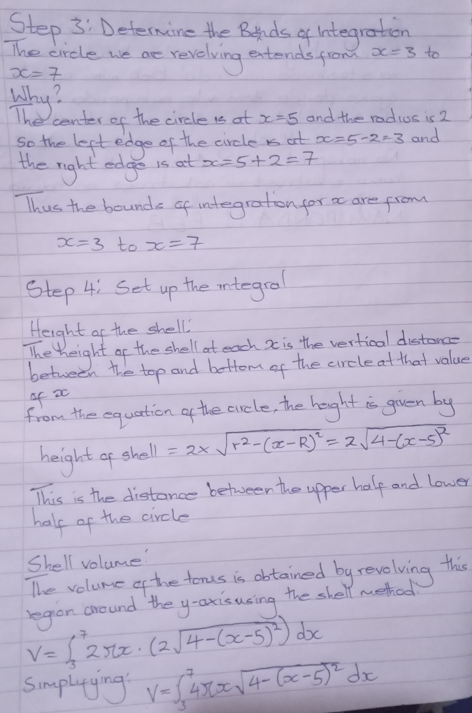 Step 3: Determine the Bounds of Integration
The circle we are revolving extends from x=3 to
x=7
Why?
The center of the circle is at x=5 and the radius is 2
so the left edge of the circle is at x=5-2=3 and
the right edge is at x=5+2=7
Thus the bounds of integration for x are from
x=3 to x=7
Step 4: Set up the integral
Height of the shell:
The height of the shell at each x is the vertical distance
between the top and bottom of the circle at that value
of x
From the equation of the circle, the height is given by
height of shell = 2× √(r²-(x-R)²) = 2√(4-(x-5)²)
This is the distance between the upper half and lower
half of the circle
Shell volume:
The volume of the torus is obtained by revolving this
region around the y-axis using the shell method
V=∫₃⁷ 2πx · (2√(4-(x-5)²)) dx
Simplifying: V=∫₃⁷ 4πx √(4-(x-5)²) dx